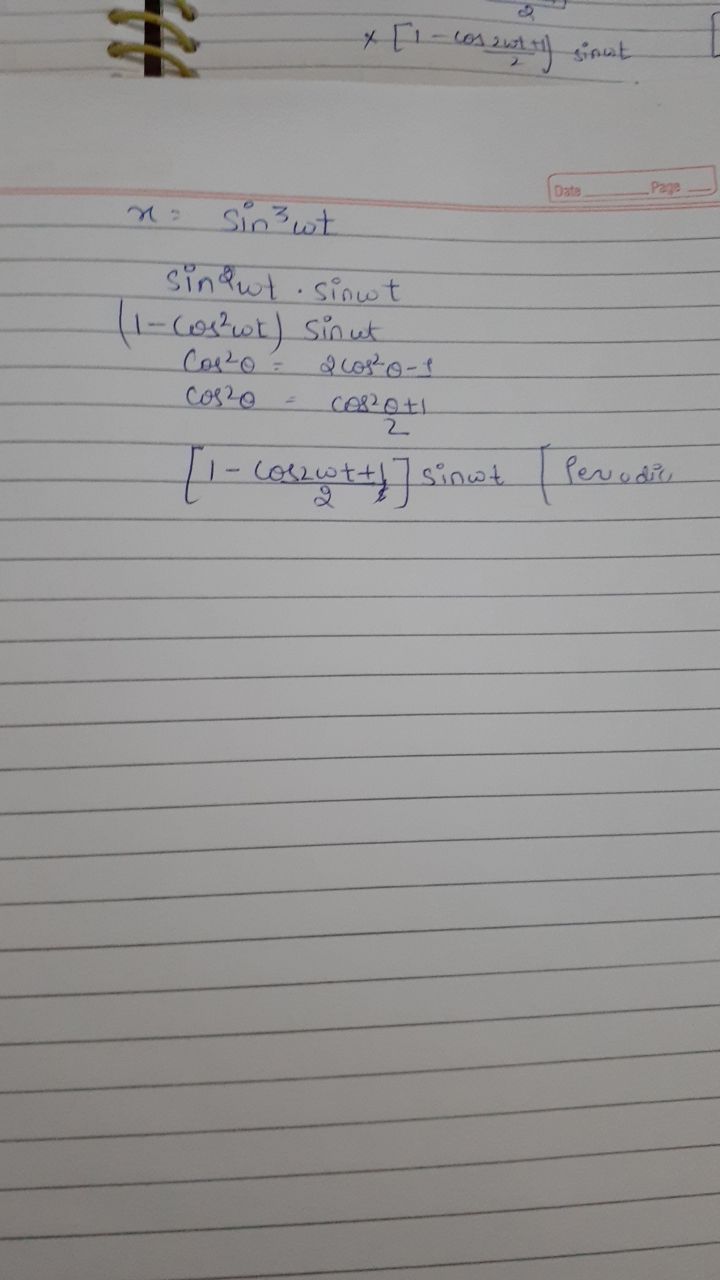 2
x [1 - cos 2wt +1 / 2] sinwt [
Date Page
x = sin³wt
sin²wt . sinwt
(1 - cos²wt) sinwt
Cos²θ = 2cos²θ-1
cos²θ = cos²θ+1 / 2
[1 - cos2wt+1 / 2] sinwt [Periodic